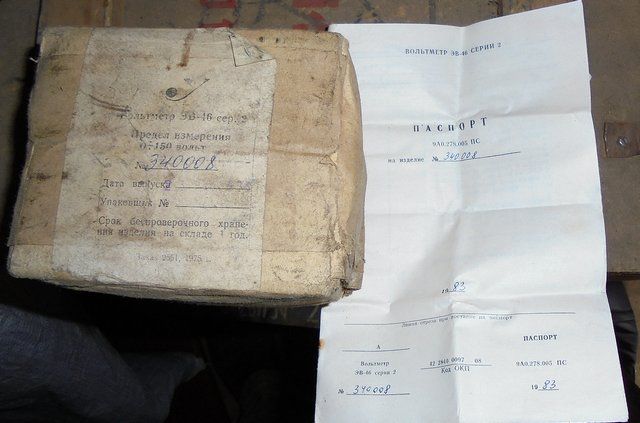 Вольтметр ЭВ-46 сер. 2
Предел измерения
0÷150 вольт
№ 340008
Дата выпуска
Упаковщик №
Срок беспроверочного хране-
ния изделия на складе 1 год.
Заказ 2551, 1975 г.
ВОЛЬТМЕТР ЭВ-46 СЕРИИ 2
ПАСПОРТ
9А0.278.005 ПС
на изделие № 340008
19 83
Линия отреза при поставке на экспорт
А
Вольтметр
ЭВ-46 серии 2
№ 340008
42 2840 0097 08
Код ОКП
ПАСПОРТ
9А0.278.005 ПС
19 83